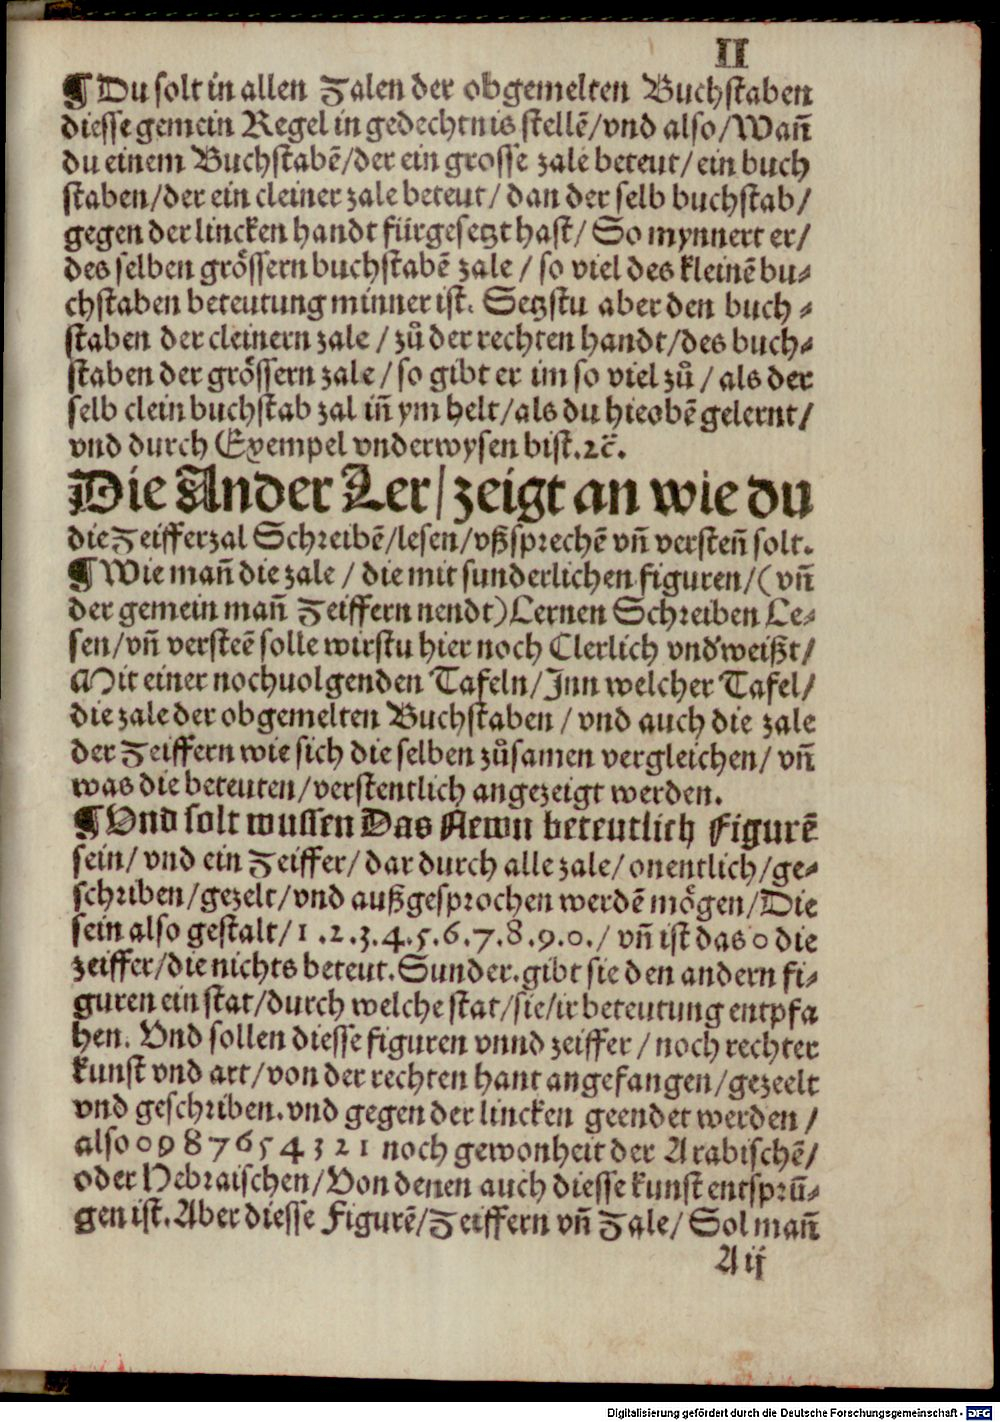 II
¶ Du solt in allen Zalen der obgemelten Buchstaben
diesse gemein Regel in gedechtnis stellē/vnd also/Wañ
du einem Buchstabē/der ein grosse zale beteut/ein buch
staben/der ein cleiner zale beteut/dan der selb buchstab/
gegen der lincken handt fürgesetzt hast/So mynnert er/
des selben grössern buchstabē zale/so viel des kleinē bu⸗
chstaben beteutung minner ist. Setzstu aber den buch⸗
staben der cleinern zale/zů der rechten handt/des buch⸗
staben der grössern zale/so gibt er im so viel zů/als der
selb clein buchstab zal iñ ym helt/als du hieobē gelernt/
vnd durch Exempel vnderwysen bist.ꝛc̄.
Die Ander Ler/zeigt an wie du
die Zeifferzal Schreibē/lesen/vßsprechē vñ versteñ solt.
¶ Wie mañ die zale/die mit sunderlichen figuren/(vñ
der gemein mañ Zeiffern nendt)Lernen Schreiben Le⸗
sen/vñ versteē solle wirstu hier noch Clerlich vnd'weißt/
Mit einer nochuolgenden Tafeln/Inn welcher Tafel/
die zale der obgemelten Buchstaben/vnd auch die zale
der Zeiffern wie sich die selben zůsamen vergleichen/vñ
was die beteuten/verstentlich angezeigt werden.
¶ Vnd solt wussen Das Newn beteutlich Figurē
sein/vnd ein Zeiffer/dar durch alle zale/onentlich/ge⸗
schriben/gezelt/vnd außgesprochen werdē mögen/Die
sein also gestalt/1.2.3.4.5.6.7.8.9.0./vñ ist das 0 die
zeiffer/die nichts beteut.Sunder.gibt sie den andern fi⸗
guren ein stat/durch welche stat/sie/ir beteutung entpfa
hen. Vnd sollen diesse figuren vnnd zeiffer/noch rechter
kunst vnd art/von der rechten hant angefangen/gezeelt
vnd geschriben.vnd gegen der lincken geendet werden/
also 0 9 8 7 6 5 4 3 2 1 noch gewonheit der Arabischē/
oder Hebraischen/Von denen auch diesse kunst entsprū⸗
gen ist.Aber diesse Figurē/Zeiffern vñ Zale/Sol mañ
A ij
Digitalisierung gefördert durch die Deutsche Forschungsgemeinschaft - DFG